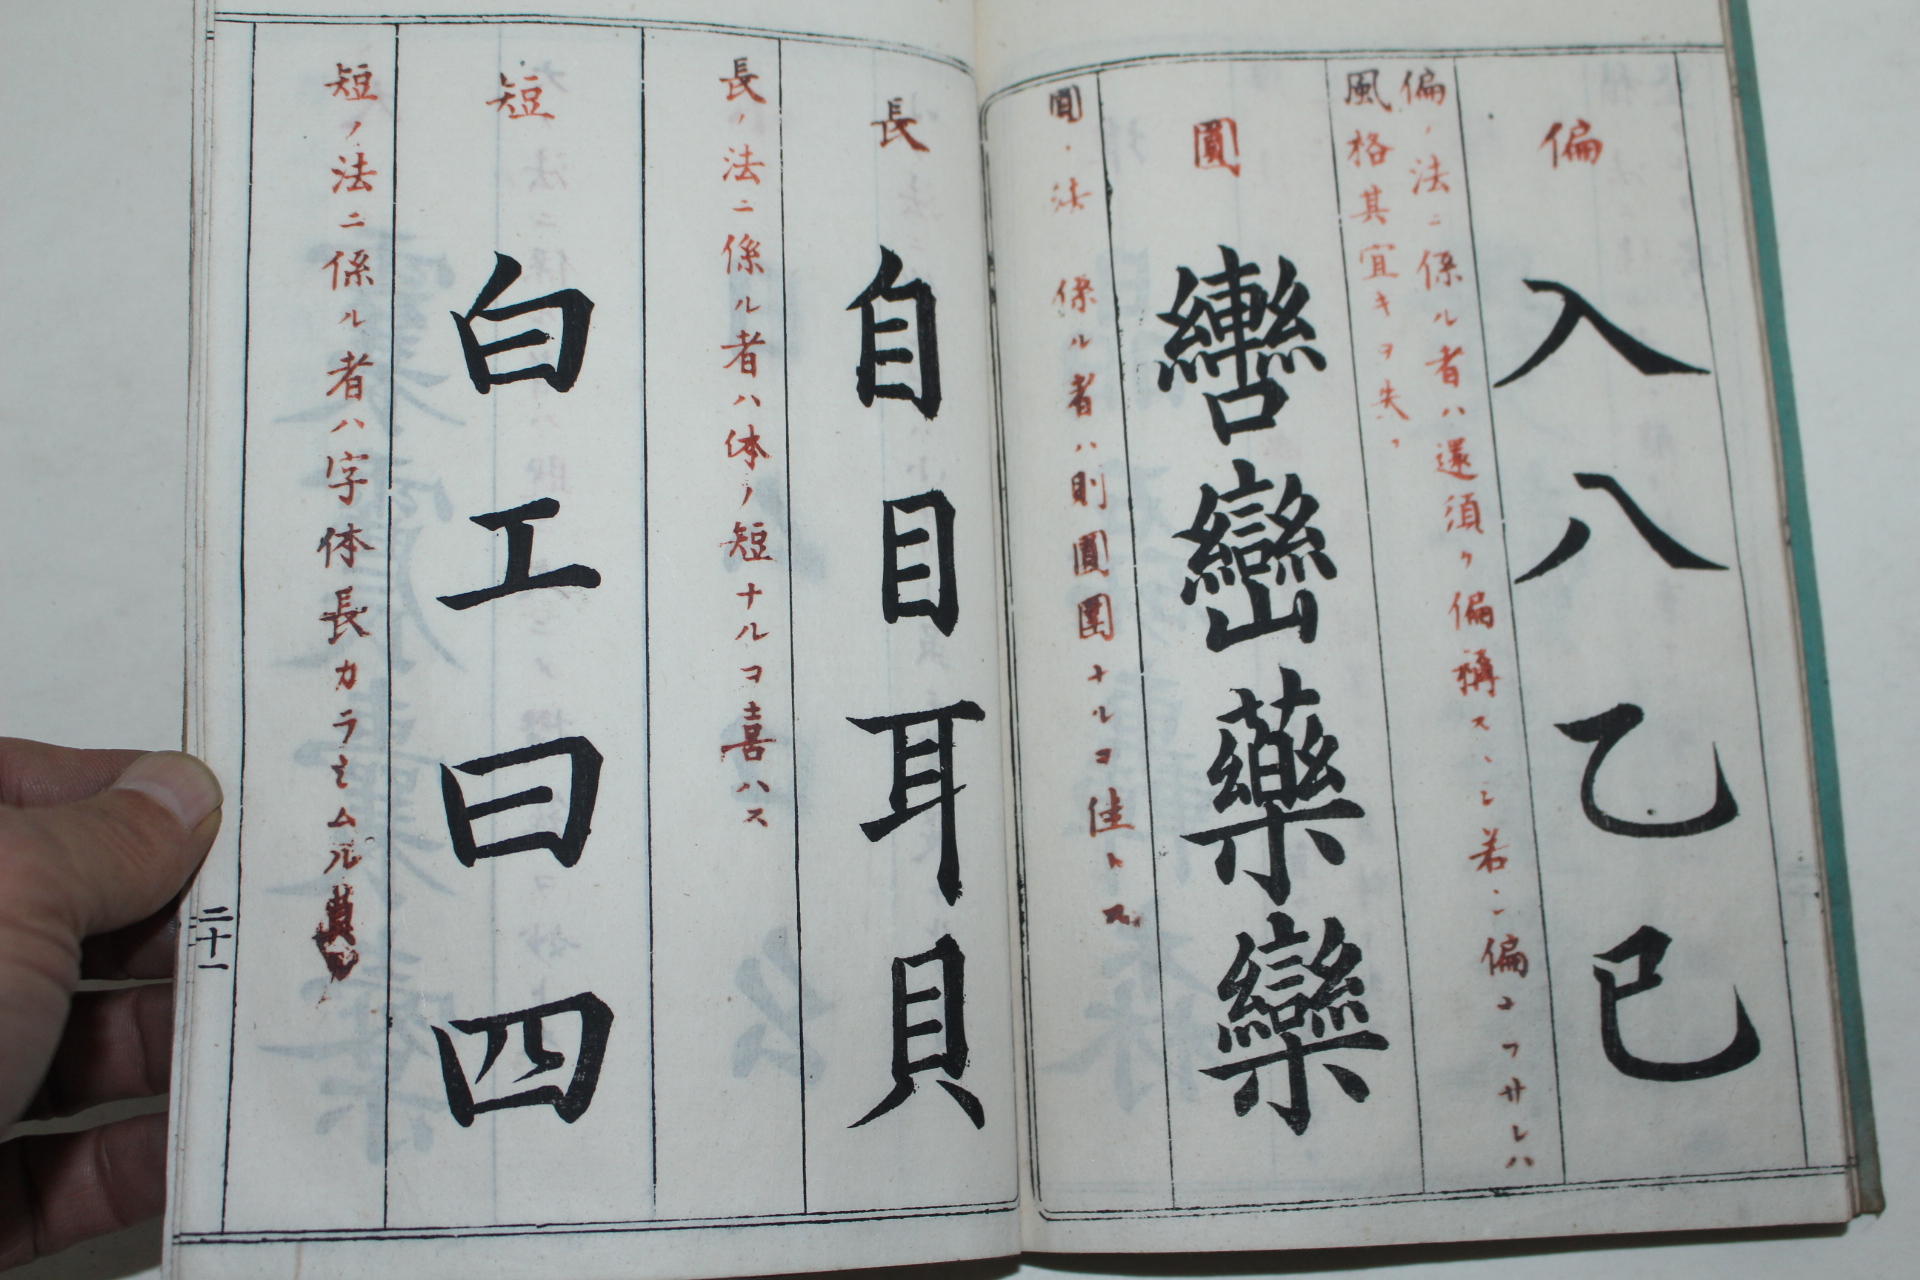 偏 入八乙巳
偏ノ法ニ係ル者ハ還須ク偏稱スヘシ若シ偏ヨワサレハ
風格其宜キヲ失フ
圓 轡巒藥欒
圓ノ法ニ係ル者ハ則圓圍ナルヲ佳トス
長 自目耳貝
長ノ法ニ係ル者ハ体ノ短ナルヲ喜ハス
短 白工曰四
短ノ法ニ係ル者ハ字体長カラシムル莫
二十一